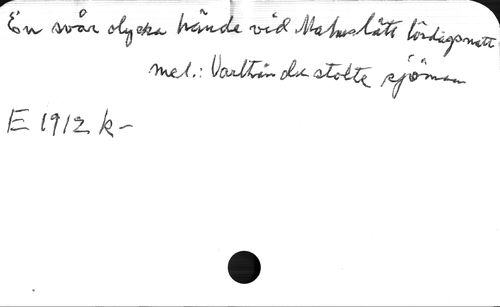 En svår olycka hände vid Malmslätt lördagsnatt
mel.: Varthän du stolte sjöman
E 1912 k-